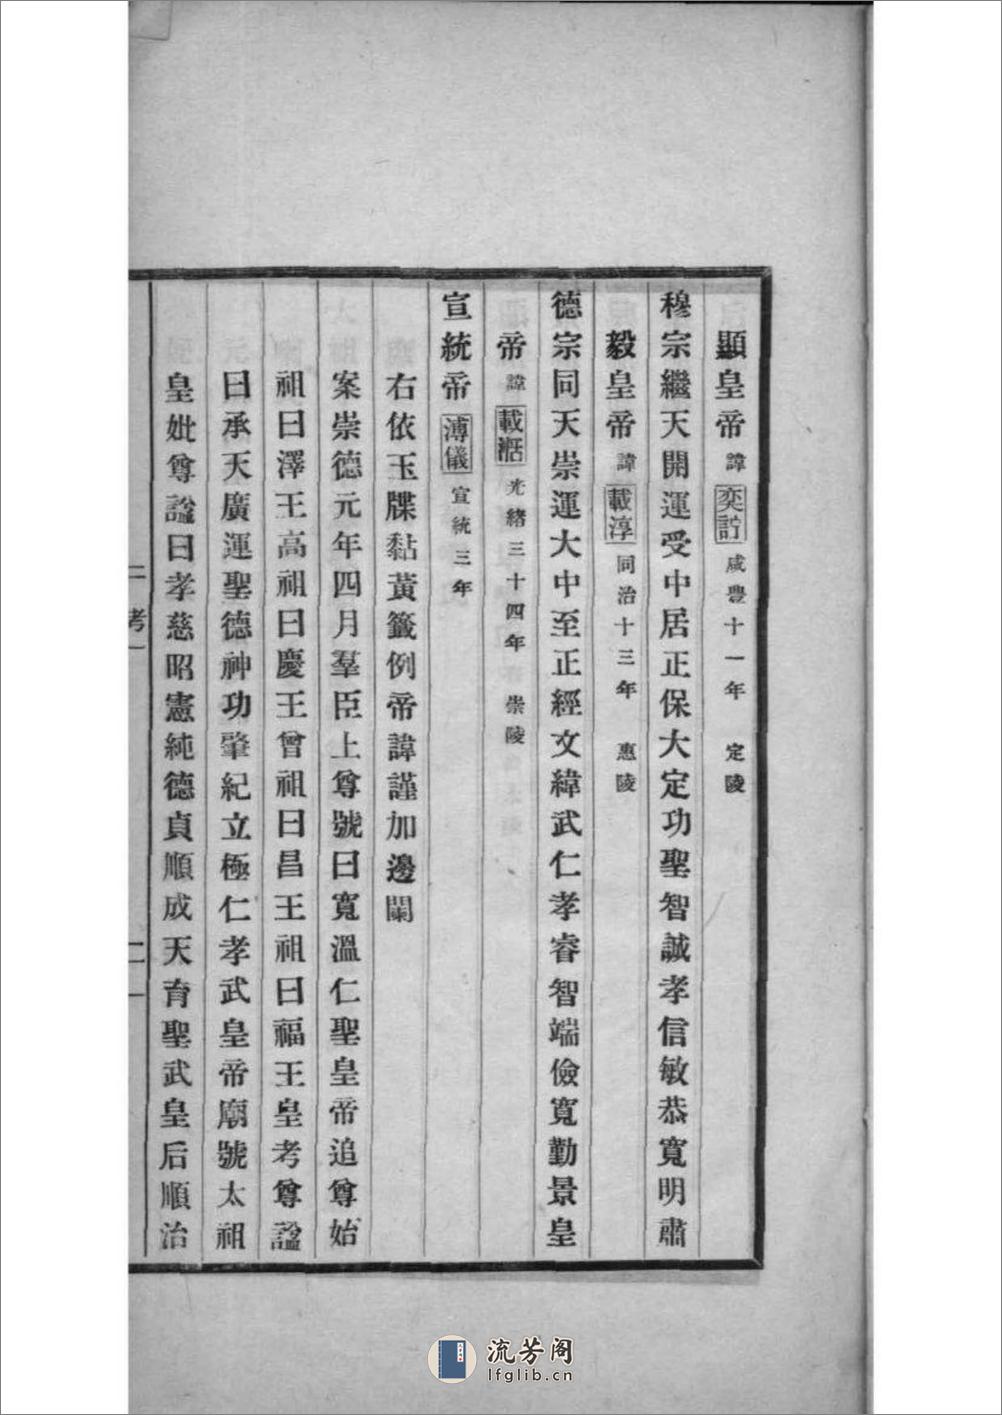 顯皇帝諱奕詝咸豐十一年 定陵
穆宗繼天開運受中居正保大定功聖智誠孝信敏恭寬明肅
毅皇帝諱載淳同治十三年 惠陵
德宗同天崇運大中至正經文緯武仁孝睿智端儉寬勤景皇
帝諱載湉光緒三十四年 崇陵
宣統帝溥儀宣統三年
右依玉牒黏黃籤例帝諱謹加邊闌
案崇德元年四月羣臣上尊號曰寬溫仁聖皇帝追尊始
祖曰澤王高祖曰慶王曾祖曰昌王祖曰福王皇考尊諡
曰承天廣運聖德神功肇紀立極仁孝武皇帝廟號太祖
皇妣尊諡曰孝慈昭憲純德貞順成天育聖武皇后順治
考一
二
流芳阁
lfglib.cn